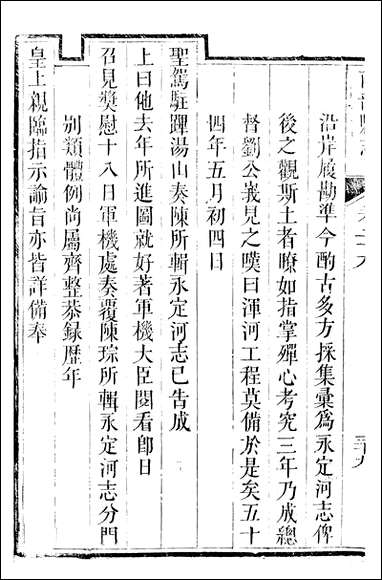 沿岸履勘準今酌古多方採集彙爲永定河志俾
後之觀斯土者瞭如指掌殫心考究三年乃成總
督劉公峩見之嘆曰渾河工程莫備於是矣五十
四年五月初四日
聖駕駐蹕湯山奏陳所輯永定河志已告成
上曰他去年所進圖就好著軍機大臣閱看卽日
召見奬慰十八日軍機處奏覆陳琮所輯永定河志分門
別類體例尚屬齊整恭録歷年
皇上親臨指示諭旨亦皆詳備奉